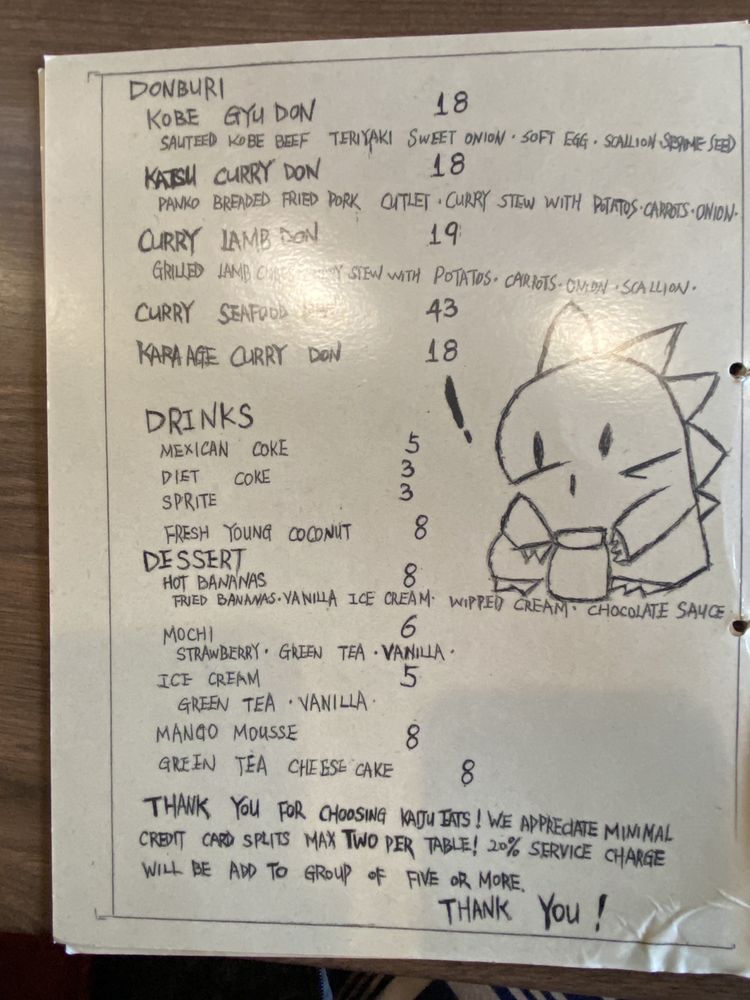 DONBURI
KOBE GYU DON 18
SAUTEED KOBE BEEF TERIYAKI SWEET ONION · SOFT EGG · SCALLION SESAME SEED
KATSU CURRY DON 18
PANKO BREADED FRIED PORK CUTLET · CURRY STEW WITH POTATOS · CARROTS · ONION ·
CURRY LAMB DON 19
GRILLED LAMB STEW WITH POTATOS · CARROTS · ONION · SCALLION ·
CURRY SEAFOOD 43
KARA AGE CURRY DON 18
DRINKS
MEXICAN COKE 5
DIET COKE 3
SPRITE 3
FRESH YOUNG COCONUT 8
DESSERT
HOT BANANAS 8
FRIED BANANAS · VANILLA ICE CREAM · WIPPED CREAM · CHOCOLATE SAUCE
MOCHI 6
STRAWBERRY · GREEN TEA · VANILLA ·
ICE CREAM 5
GREEN TEA · VANILLA ·
MANGO MOUSSE 8
GREEN TEA CHEESE CAKE 8
THANK YOU FOR CHOOSING KAIJU EATS! WE APPRECIATE MINIMAL
CREDIT CARD SPLITS MAX TWO PER TABLE! 20% SERVICE CHARGE
WILL BE ADD TO GROUP OF FIVE OR MORE.
THANK YOU!